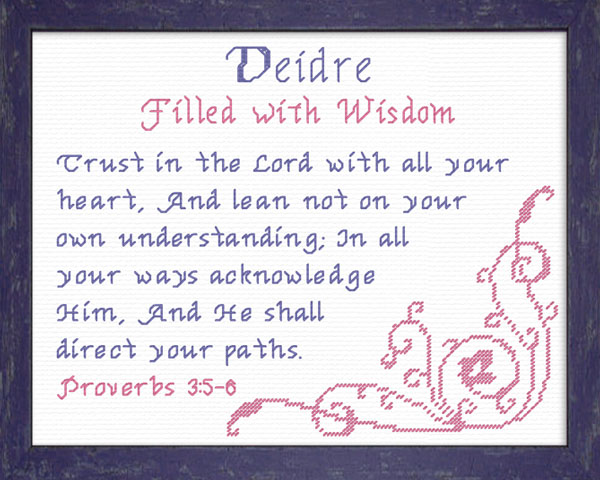 Deidre
Filled with Wisdom
Trust in the Lord with all your
heart, And lean not on your
own understanding; In all
your ways acknowledge
Him, And He shall
direct your paths.
Proverbs 3:5-6